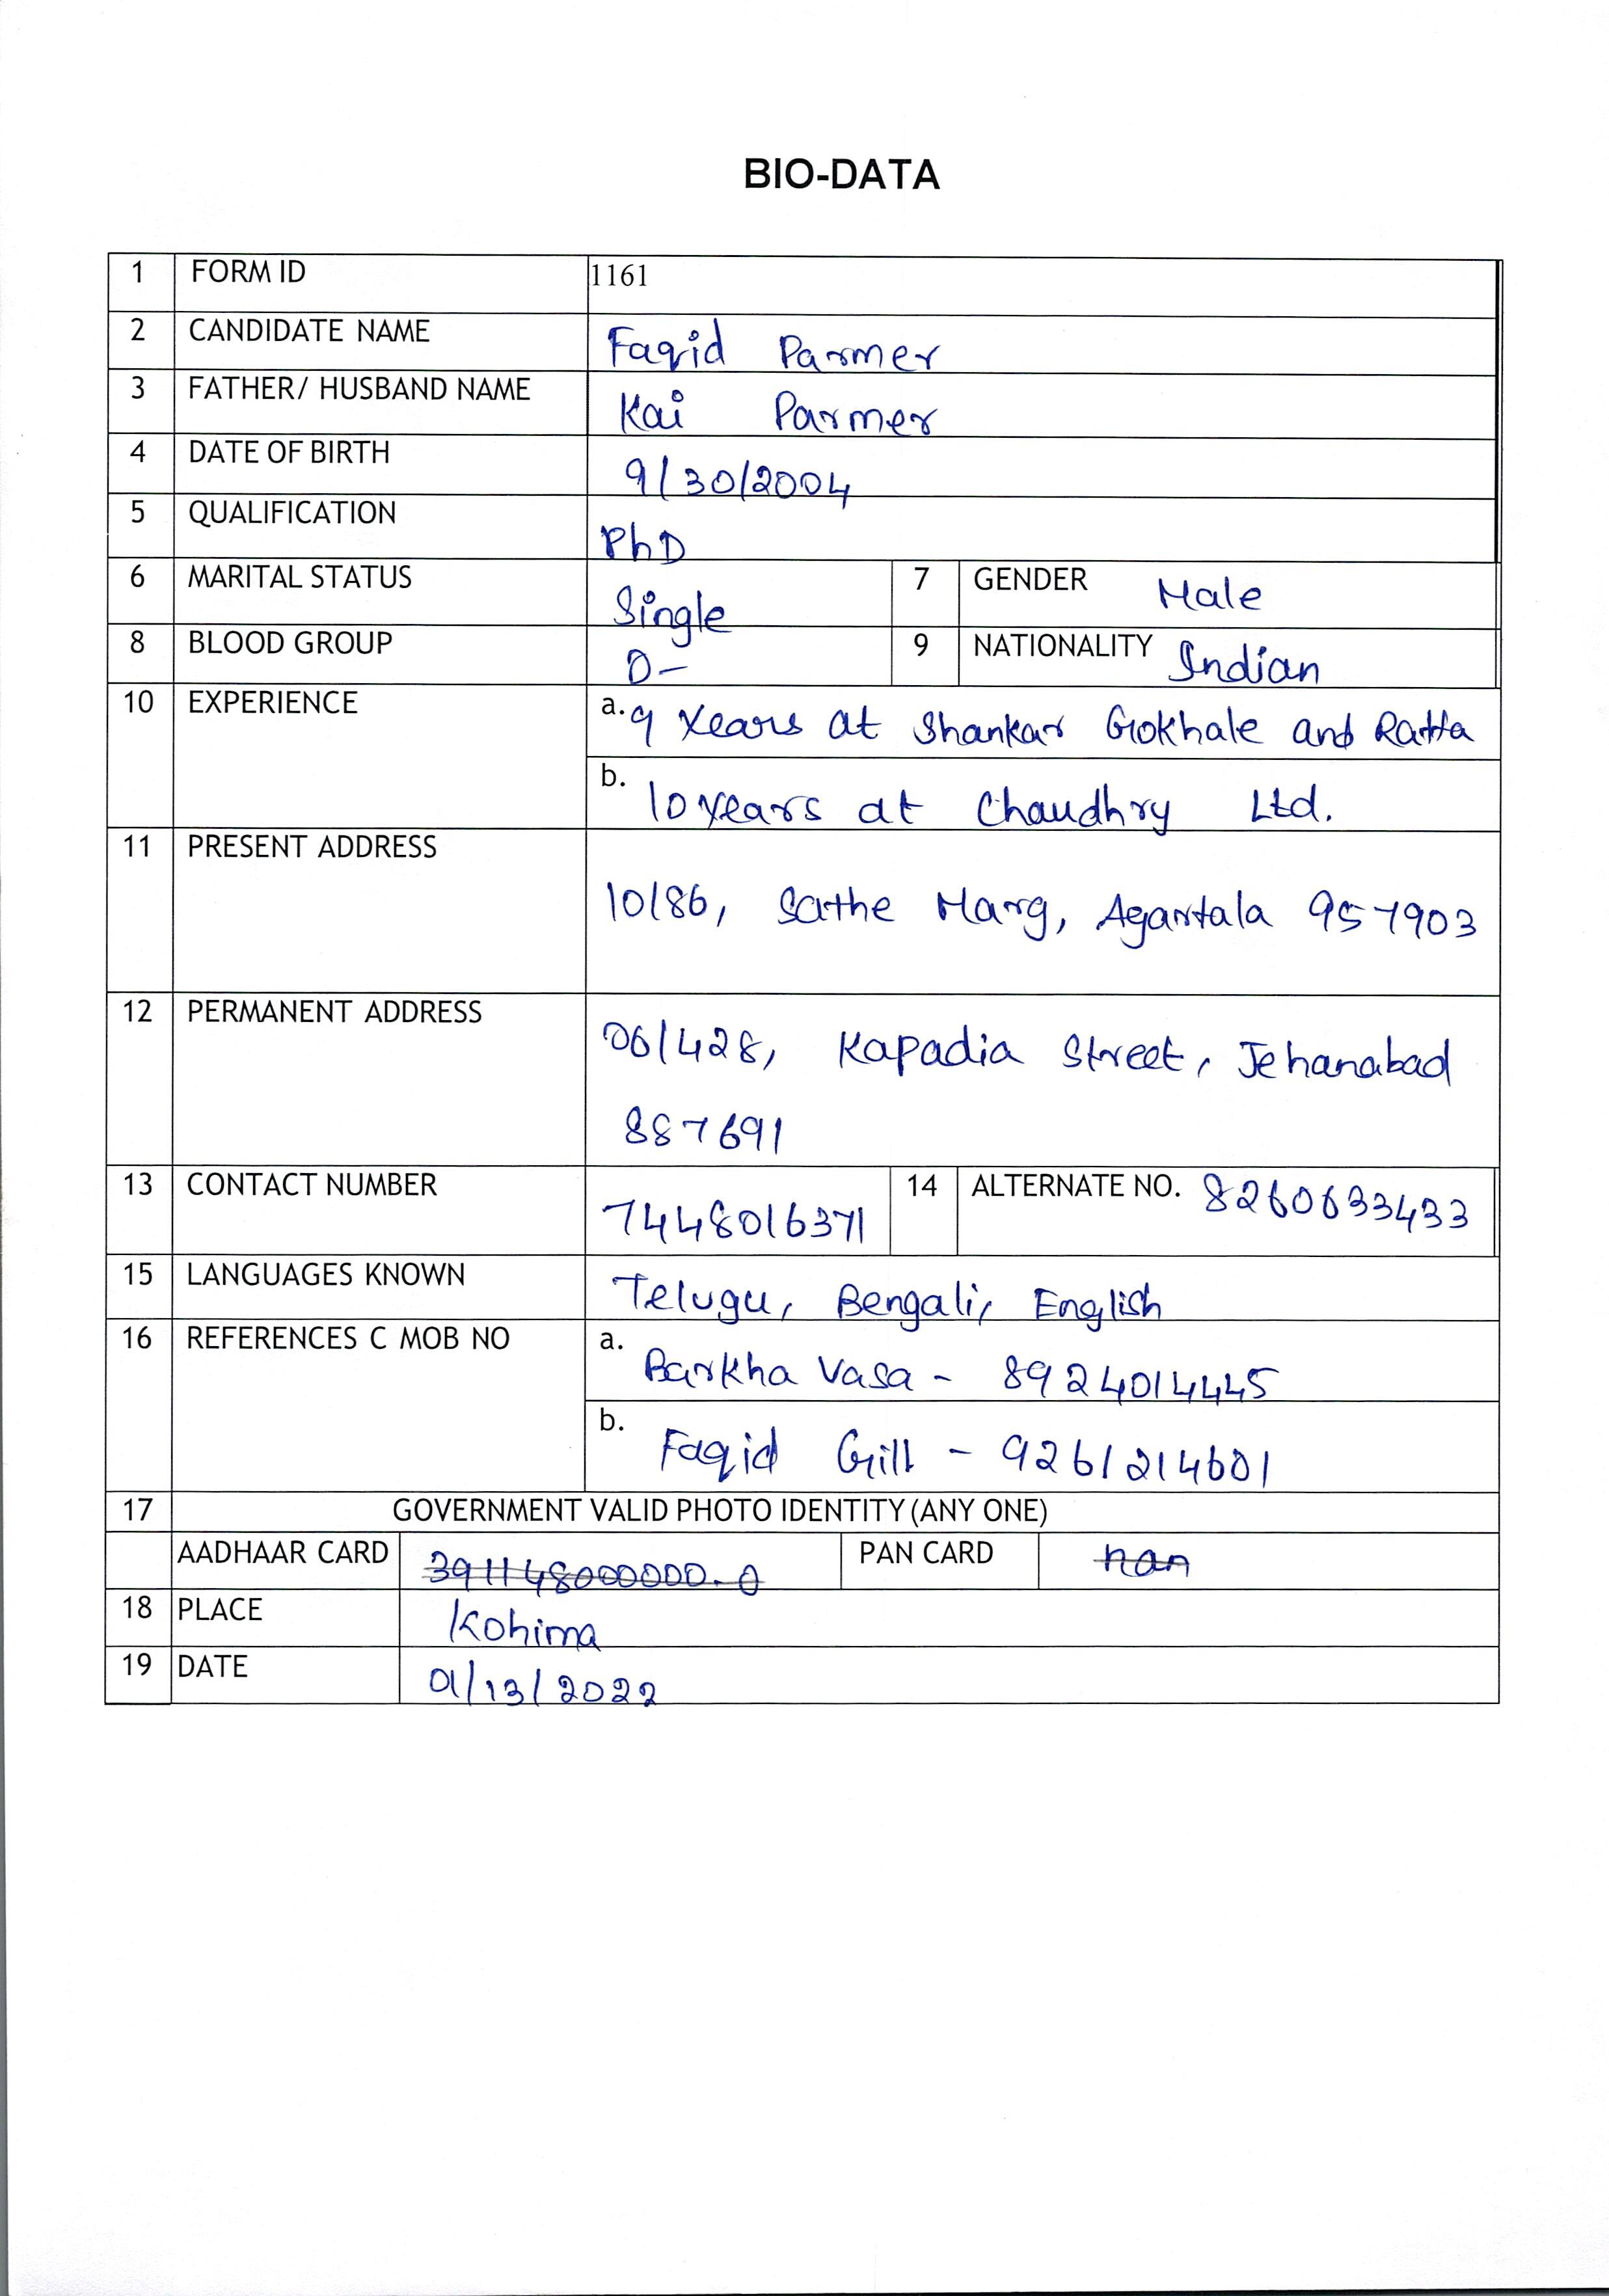 BIO-DATA
1 FORM ID 1161
2 CANDIDATE NAME Faqid Parmer
3 FATHER/ HUSBAND NAME Kai Parmer
4 DATE OF BIRTH 9/30/2004
5 QUALIFICATION PhD
6 MARITAL STATUS Single 7 GENDER Male
8 BLOOD GROUP O- 9 NATIONALITY Indian
10 EXPERIENCE a. 9 Years at Shankar Gokhale and Ratta
b. 10 years at Chaudhry Ltd.
11 PRESENT ADDRESS
10/86, Sathe Marg, Agartala 957903
12 PERMANENT ADDRESS 06/428, Kapadia Street, Jehanabad
887691
13 CONTACT NUMBER 7448016371 14 ALTERNATE NO. 8260633433
15 LANGUAGES KNOWN Telugu, Bengali, English
16 REFERENCES C MOB NO a. Barkha Vasa - 8924014445
b. Faqid Gill - 9261214601
17 GOVERNMENT VALID PHOTO IDENTITY (ANY ONE)
AADHAAR CARD 391148000000.0 PAN CARD nan
18 PLACE Kohima
19 DATE 01/13/2022